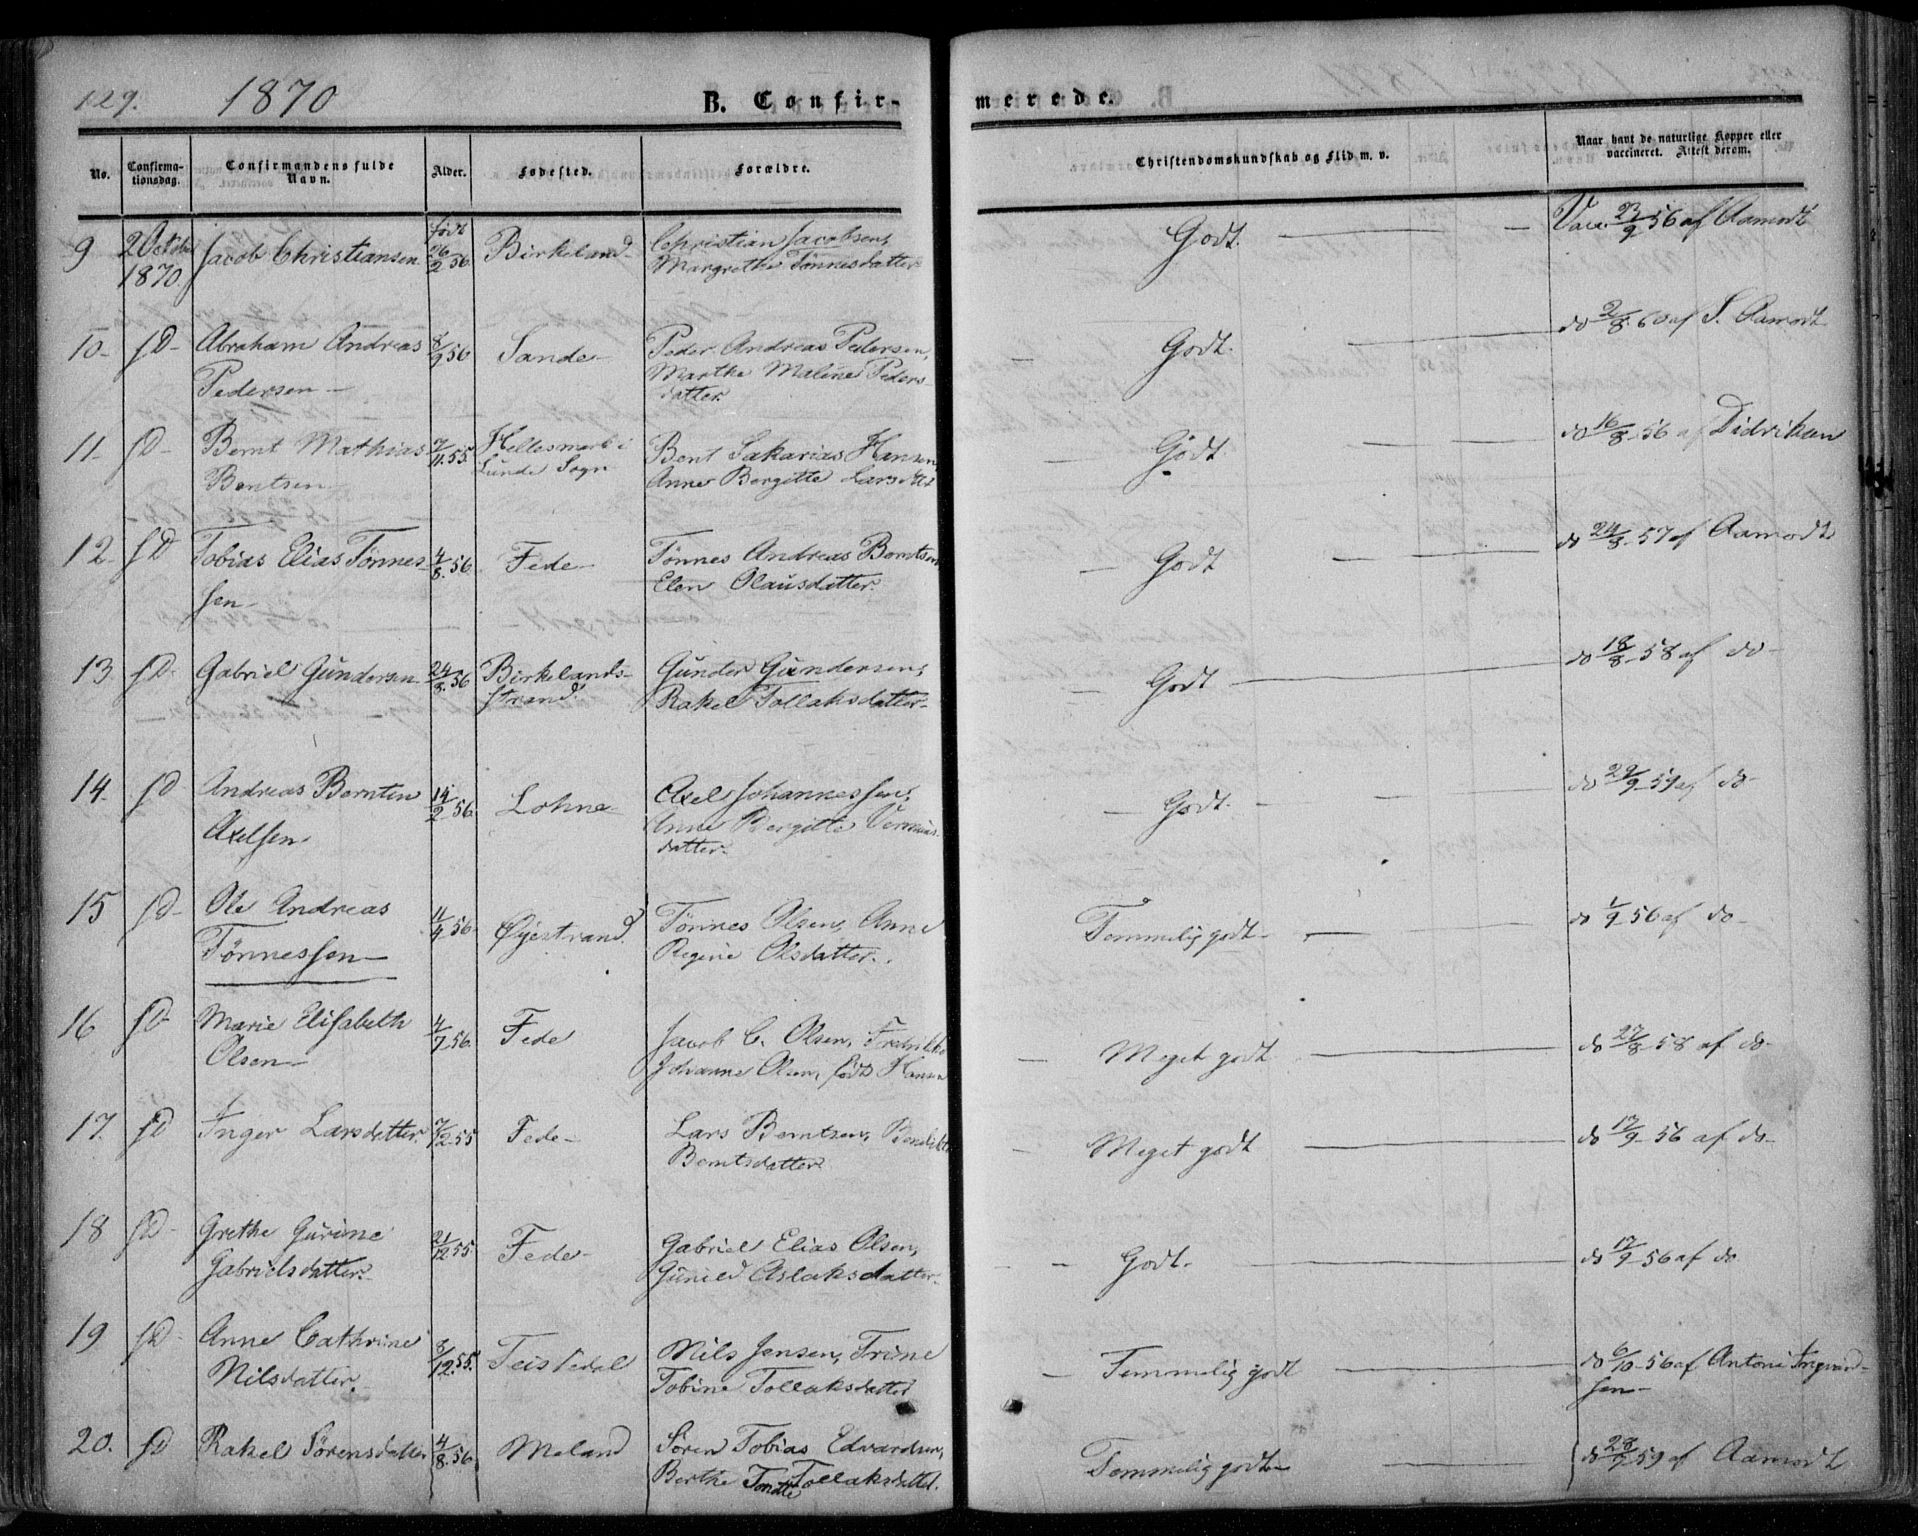 129. 1870 B. Confirmerede.
No. Confirmationsdag. Confirmandens fulde Navn. Alder. Fødested. Forældre. Christendomskundskab og Flid m. v. Naar havt de naturlige Kopper eller vaccineret. Attest derom.
9 2 Octobr 1870. Jacob Christiansen født 26/2 56 Birkeland Christian Jacobsen, Margrethe Tønnesdatter Godt. — Vacc 23/9 56 af Aamodt
10- sD- Abraham Andreas Pedersen- 8/9 56 Sande- Peder Andreas Pedersen, Marthe Maline Pedersdatter. — Godt. — do 2/8 60 af S. Aamodt
11- sD- Bernt Mathias Bentsen 7/11 55. Hellesmark i Lunde Sogn Bent Sakarias Hansen, Anne Bergitte Larsdttr — Godt. — do 16/8 56 af Didriksen
12- sD Tobias Elias Tønnessen- 4/8. 56. Fede- Tønnes Andreas Berntsen Elen Olausdatter. — Godt — do 24/8 57 af Aamodt
13. sD- Gabriel Gundersen 24/8. 56 Birkelandsstrand Gunder Gundersen, Rakel Tollaksdatter- — Godt — do 18/8 58 af do-
14- sD Andreas Bernten Axelsen. 14/2 56. Lohne- Axel Johannessen, Anne Bergitte datter- — Godt. — do 29/9 59 af do-
15 sD- Ole Andreas Tønnessen- 11/4 56- Øjestrand. Tønnes Olsen, Anne Regine Olsdatter. Temmelig godt- — do 1/9 56 af do-
16 sD- Marie Elisabeth Olsen- 4/7 56. Fede Jacob C. Olsen, Fredrikke Johanne Olsen, født Hansen — Meget godt — do 27/8 58 af do-
17. sD Inger Larsdatter 7/12 55 Fede- Lars Berntsen, Berntsdatter — Meget godt — do 17/9 56 af do-
18 sD- Grethe Gurine Gabrielsdatter- 21/12 55 Fede- Gabriel Elias Olsen, Gunild Aslaksdatter. — Godt. — do 17/9 56 af do
19 sD- Anne Cathrine Nilsdatter. 8/12 55. Teistedal Nils Jensen, Trine Tobine Tollaksdatter — Temmelig godt — do 6/10 56 af Antoni Ingvardsen-
20. sD Rakel Sørensdatter 4/8. 56 Meland Søren Tobias Edvardsen, Berthe Tonette Tollaksdatter. Temmelig godt- — do 28/9 59 af Aamodt